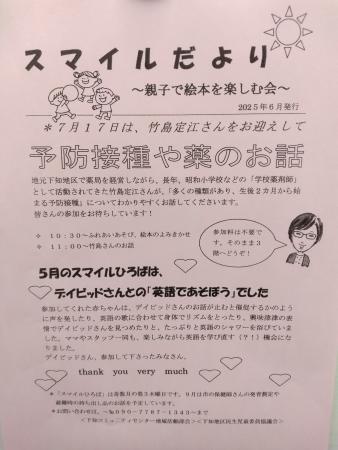 スマイルだより
～親子で絵本を楽しむ会～
2025年6月発行
＊7月17日は、竹島定江さんをお迎えして
予防接種や薬のお話
地元下知地区で薬局を経営しながら、長年、昭和小学校などの「学校薬剤師」
として活動されてきた竹島定江さんが、「多くの種類があり、生後２カ月から始
まる予防接種」についてわかりやすくお話してくださいます。
皆さんの参加をお待ちしています！
＊ 10：30～ふれあいあそび、絵本のよみきかせ
＊ 11：00～竹島さんのお話
参加料は不要で
す。そのまま３
階へどうぞ！
５月のスマイルひろばは、
デイビッドさんとの「英語であそぼう」でした
参加してくれた赤ちゃんは、デイビッドさんのお話が止むと催促するかのよう
に声を発したり、英語の歌に合わせて身体でリズムをとったり、興味津津の表
情でデイビッドさんを見つめたりと、たっぷりと英語のシャワーを浴びていまし
た。ママやスタッフ一同も、楽しみながら英語を学び直す（？！）機会にな
りました。
デイビッドさん、参加して下さったみなさん、
thank you very much
＊「スマイルひろば」は奇数月の第３木曜日です。９月は市の保健師さんの発育測定や
避難時の持ち出し品のお話を予定しています。
＊お問い合わせは、～℡090-7787-1343～まで
＜下知コミュニティセンター地域活動部会＞＜下知地区民生児童委員協議会＞